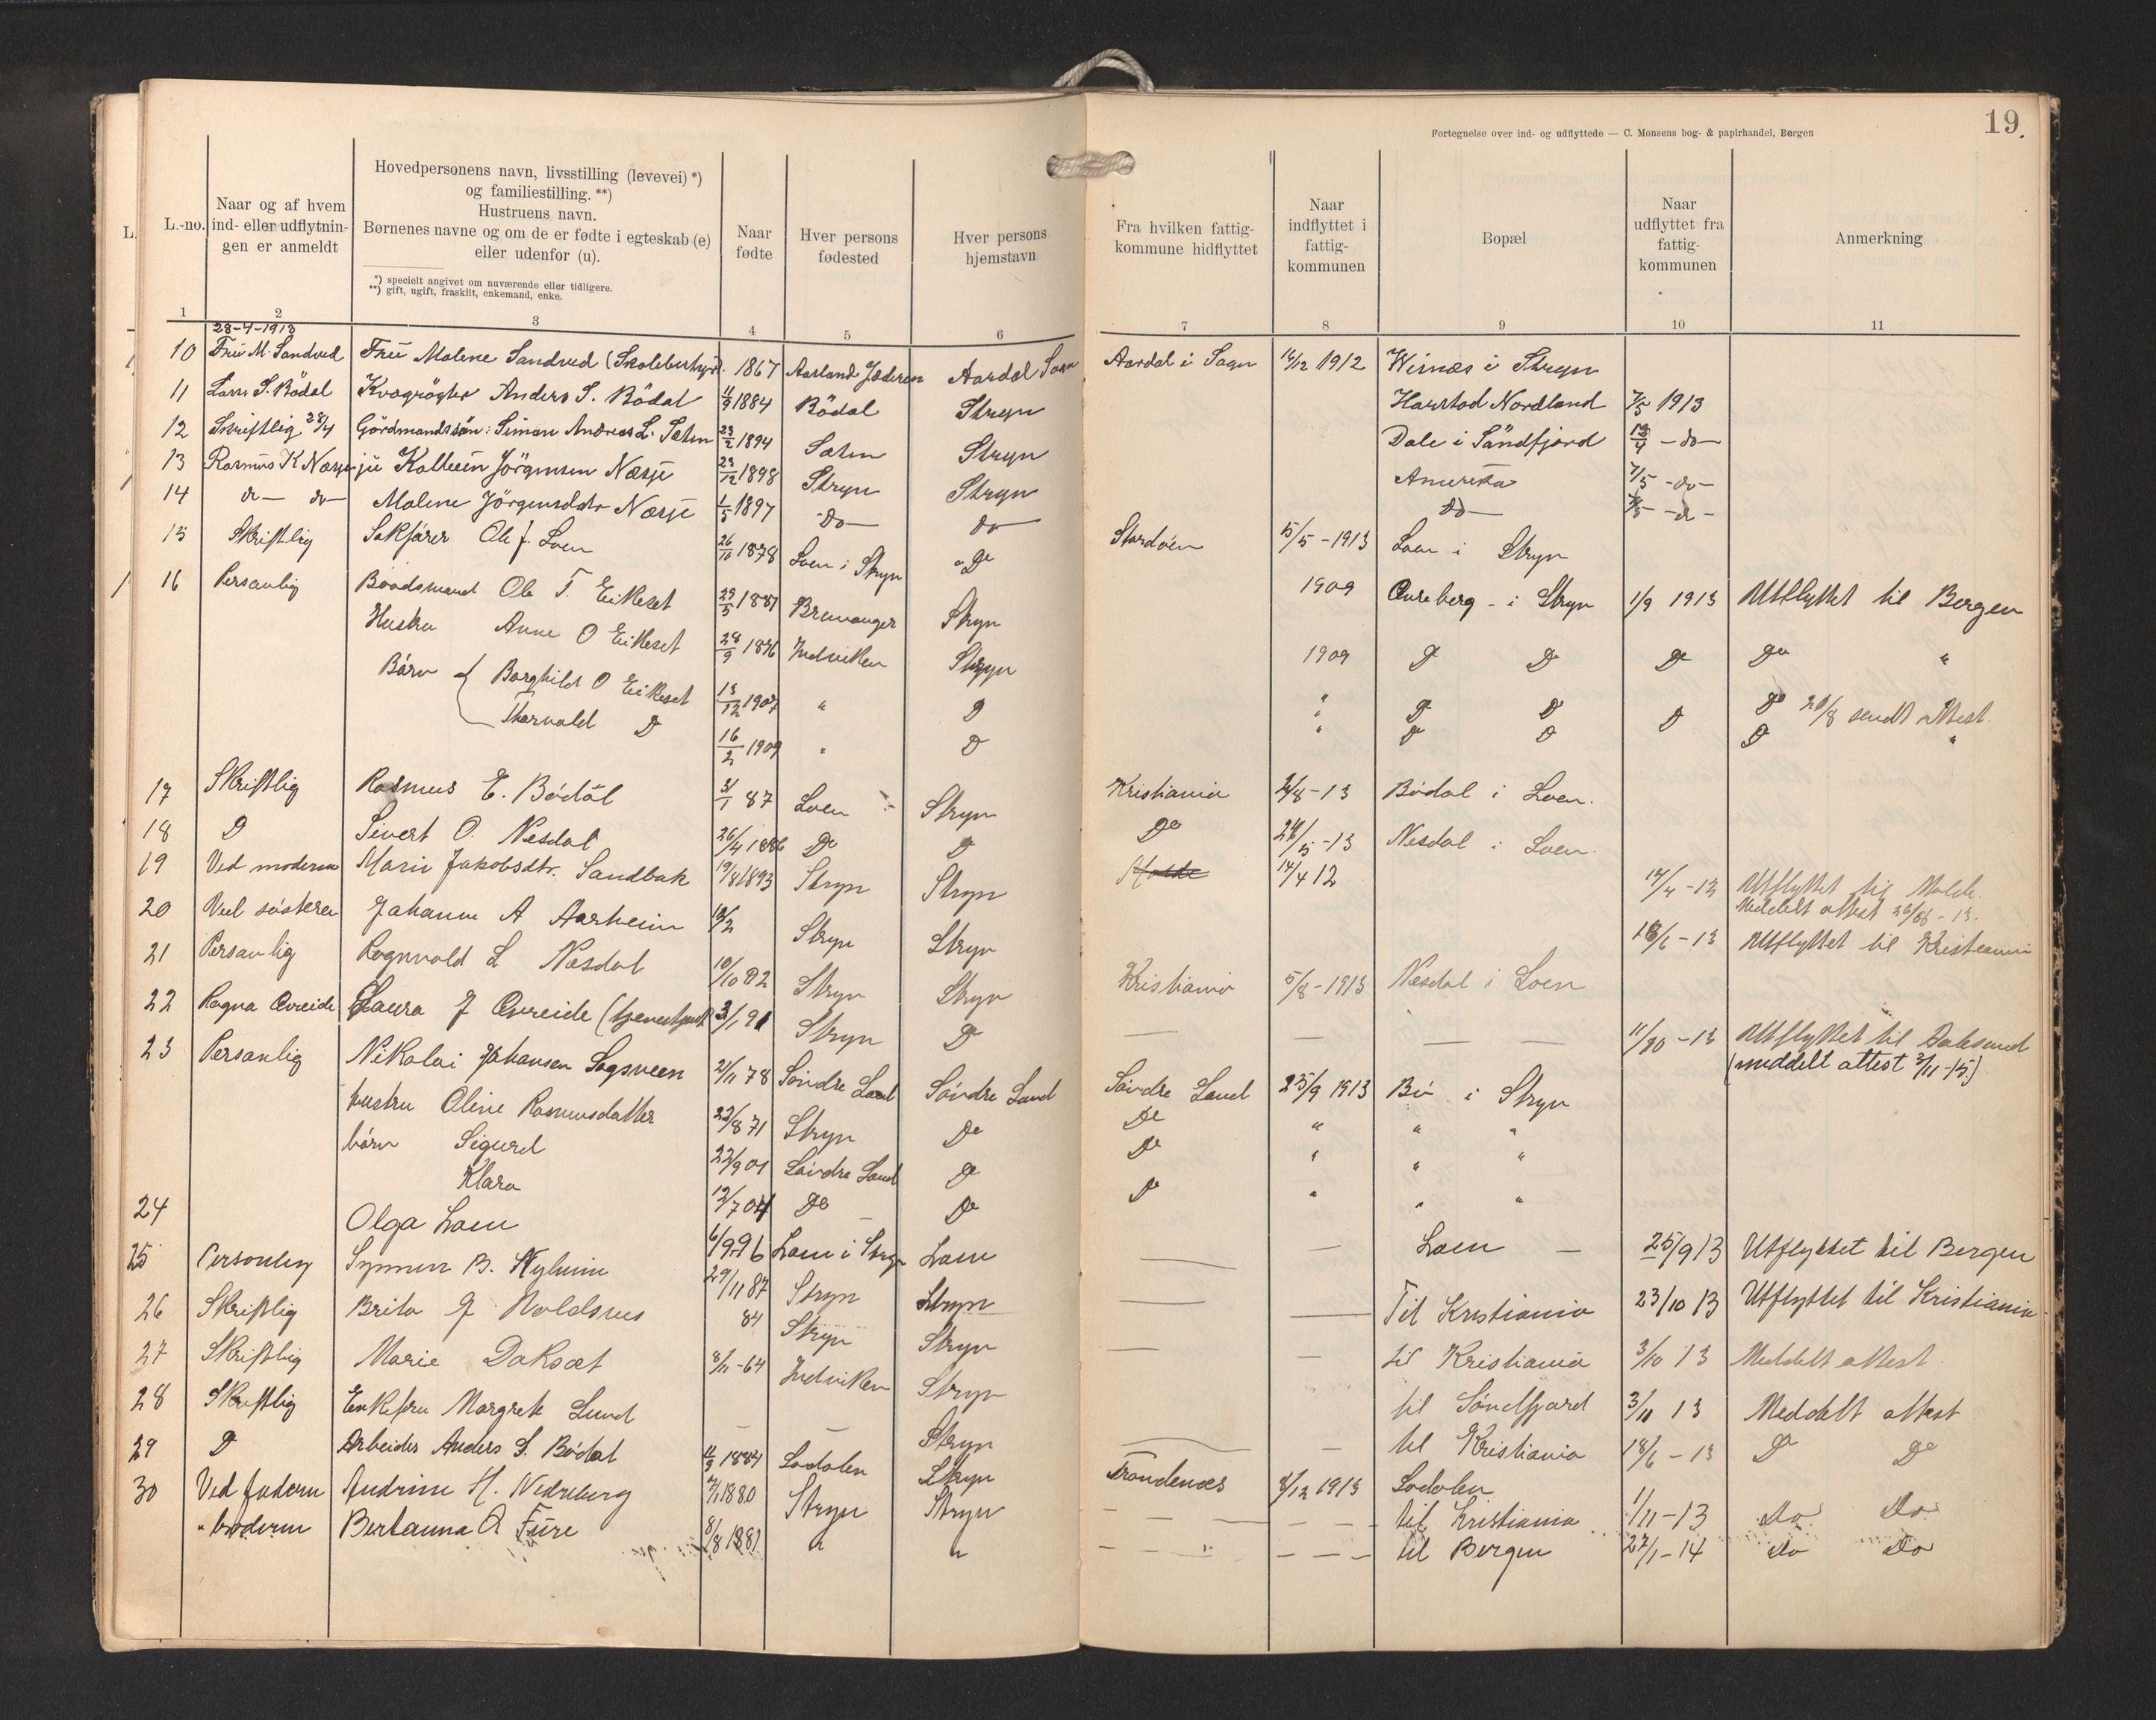 19.
Fortegnelse over ind- og udflyttede — C. Monsens bog- & papirhandel, Bergen
L.
L.-no.
Naar og af hvem ind- eller udflytnin-gen er anmeldt
Hovedpersonens navn, livsstilling (levevei) *) og familiestilling. **)
Hustruens navn.
Børnenes navne og om de er fødte i egteskab (e) eller udenfor (u).
*) specielt angivet om nuværende eller tidligere.
**) gift, ugift, fraskilt, enkemand, enke.
Naar fødte
Hver persons fødested
Hver persons hjemstavn
Fra hvilken fattig-kommune hidflyttet
Naar indflyttet i fattig-kommunen
Bopæl
Naar udflyttet fra fattig-kommunen
Anmerkning
1 2 3 4 5 6 7 8 9 10 11
28-4-1913
10 Fru M. Sandvud Fru Malene Sandvud 1867 Aarland Jæderen Aardal Sogn Aardal i Sogn 1912 Wisnæs i Stryn
11 Lars S. Bödal Kvægrögter Anders S. Bödal 11/9 1884 Bödal Stryn Harstad Nordland 7/5 1913
12 Skriftlig 28/4 Gårdmandssön: Simon Andreas L. Sæten 23/2 1894 Sæten Stryn Dale i Söndfjord -do-
13 Rasmus K Næsje Kolbein Jörgensen Næsje 23/12 1898 Stryn Stryn Amerika 7/5 -do-
14 do- do- Malene Jörgensdatr Næsje 1/5 1897 -Do- do do- -do-
15 Skriftlig Sakfører Ole J. Loen 26/10 1878 Loen i Stryn Do Stordøen 15/5-1913 Loen i Stryn
16 Personlig Baadsmand Ole T. Eikeset 29/5 1881 Bremanger Stryn 1909 Øvreberg i Stryn 1/9 1913 Utflyttet til Bergen
Hustru Anne O Eikeset 28/9 1876 Indviken Stryn 1909 Do Do Do Do "
Børn { Borghild O Eikeset 13/12 1907 " Do " Do Do Do Do 20/8 sendt attest.
Thorvald Do 16/2 1909 " Do " Do Do Do "
17 Skriftlig Rasmus E. Bødal 31/1 87 Loen Stryn Kristiania 2/8-13 Bødal i Loen.
18 Do Sivert O. Nesdal 26/4 1886 Do Do Do 24/5-13 Nesdal i Loen.
19 Ved moderen Marie Jakobsdtr. Sandbak 19/8 1893 Stryn Stryn Molde 14/4 12 14/4-12 Utflyttet til Molde.
Meddelt attest 26/8-13.
20 Ved søsteren Johanne A Aarheim 12/2 Stryn Stryn 18/6-13 Utflyttet til Kristiania
21 Personlig Ragnvald L Næsdal 10/10 92 Stryn Stryn Kristiania 5/8-1913 Næsdal i Loen
22 Ragna Øvreide Laura J Øvreide (tjenestpike) 3/1 91 Stryn Do — — — — — 11/10-13 Utflyttet til Aalesund
(meddelt attest 3/11-15)
23 Personlig Nikolai Johansen Sogsveen 21/11 78 Søndre Land Søndre Land Søndre Land 25/9 1913 Bø i Stryn
hustru Oline Rasmusdatter 22/8 71 Stryn Do Do " " "
børn Sigurd 22/9 01 Søndre Land Do Do " " "
Klara 12/7 04 Do Do Do " " "
24 Olga Loen 6/9 96 Loen i Stryn Loen — — Loen — 25/9 13 Utflyttet til Bergen
25 Personlig Synnøv B. Nyheim 29/11 87 Stryn Stryn — — Til Kristiania 23/10 13 Utflyttet til Kristiania
26 Skriftlig Brita J Noldsnes 84 Stryn Stryn — — til Kristiania 3/10 13 Meddelt attest
27 Skriftlig Marie Daksæt 8/11-64 Indviken Stryn til Søndfjord 3/11 13 Meddelt attest
28 Skriftlig Enkefru Margrete Lund — — Stryn — — til Kristiania 18/6-13 Do Do
29 Do Arbeider Anders S. Bødal 11/9 1884 Lodalen Stryn Trondenæs 8/12 1913 Lodalen
30 Ved faderen Andrine H. Nedreberg 7/1 1880 Stryn Stryn — — til Kristiania 1/11-13 Do Do
" broderen Bertanna A Füre 8/8 1881 " " — — til Bergen 27/1-14 Do Do